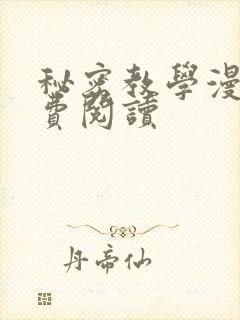 秘密教學漫
費閱讀
丹帝仙